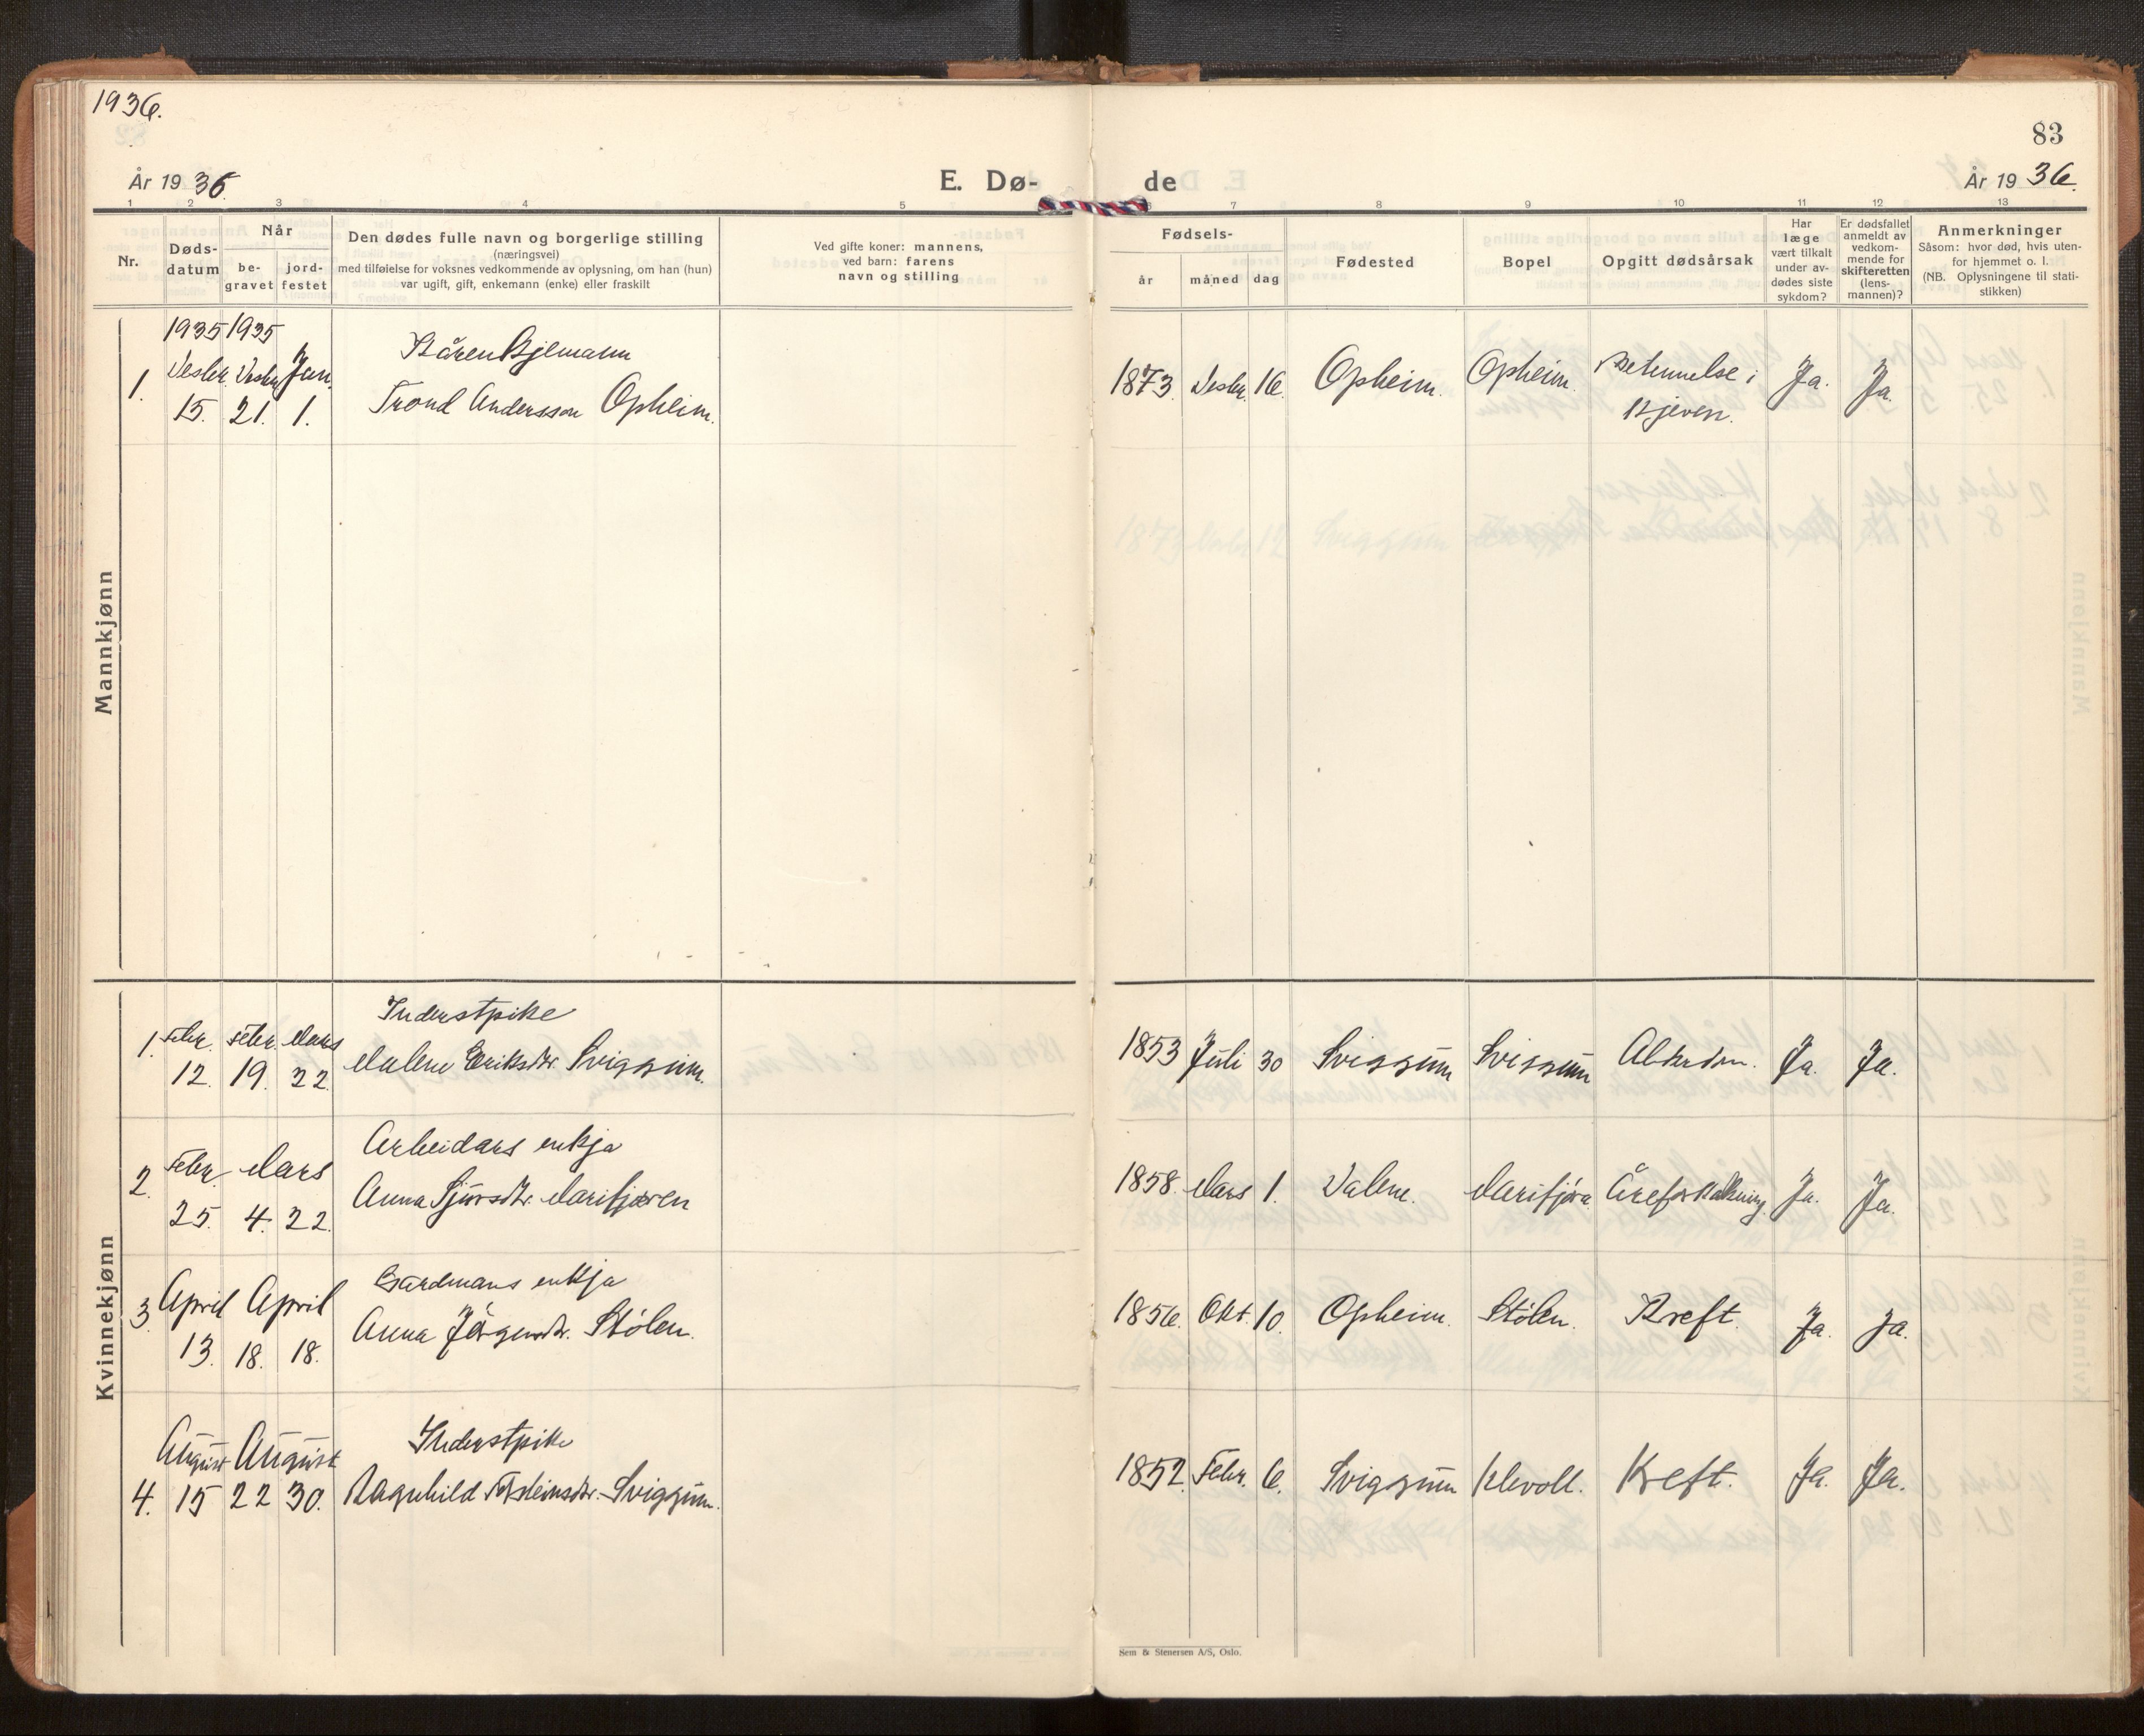 1936.
83
År 1936.
E. Dø-
de
År 1936.
1 2 3 4 5 7 8 9 10 11 12 13
Nr.
Døds-
datum
Når
be-
gravet
jord-
festet
Den dødes fulle navn og borgerlige stilling
(næringsvei)
med tilføielse for voksnes vedkommende av oplysning, om han (hun)
var ugift, gift, enkemann (enke) eller fraskilt
Ved gifte koner: mannens,
ved barn: farens
navn og stilling
Fødsels-
år måned dag
Fødested
Bopel
Opgitt dødsårsak
Har
læge
vært tilkalt
under av-
dødes siste
sykdom?
Er dødsfallet
anmeldt av
vedkom-
mende for
skifteretten
(lens-
mannen)?
Anmerkninger
Såsom: hvor død, hvis uten-
for hjemmet o. l.
(NB. Oplysningene til stati-
stikken)
Mannkjønn
1935 1935
1. Desbr. Desbr. Jan.
15. 21. 1.
Trond Andersson Opheim.
1873. Desbr. 16. Opheim. Opheim. Betennelse i Ja. Ja.
Kjeven.
Kvinnekjønn
Inderstpike
1. Febr. Febr. Mars
12. 19. 22.
Malene Eriksdtr. Sviggum.
1853 Juli 30 Sviggum Sviggum Alderdom. Ja. Ja.
Arbeidars enkja
2. Febr. Mars
25. 4. 22.
Anna Sjursdtr. Marifjøren
1858. Mars 1. Marifjøra Åreforkalkning Ja. Ja.
Gardmans enkja
3. April April
13. 18. 18.
Anna Jørgensdtr. Stølen.
1856. Okt. 10. Opheim. Stølen. Kreft. Ja. Ja.
Inderstpike
August August
4. 15 22 30.
Ragnhild Torsteinsdtr. Sviggum.
1852. Febr. 6. Sviggum Klevoll. Kreft. Ja. Ja.
Sem & Stenersen A/S, Oslo.